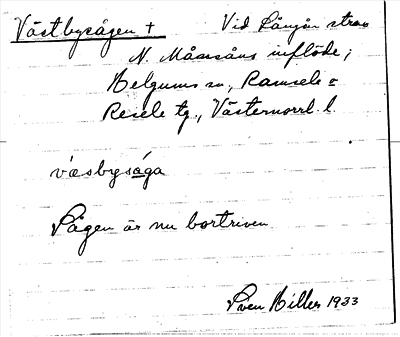 Västbysågen + Vid Sångån strax
N. Måsnåns inflöde;
Helgums sn, Ramsele o
Resele tg., Västernorrl. l.
væsbysåga
Sågen är nu bortriven
Sven Hiller 1933